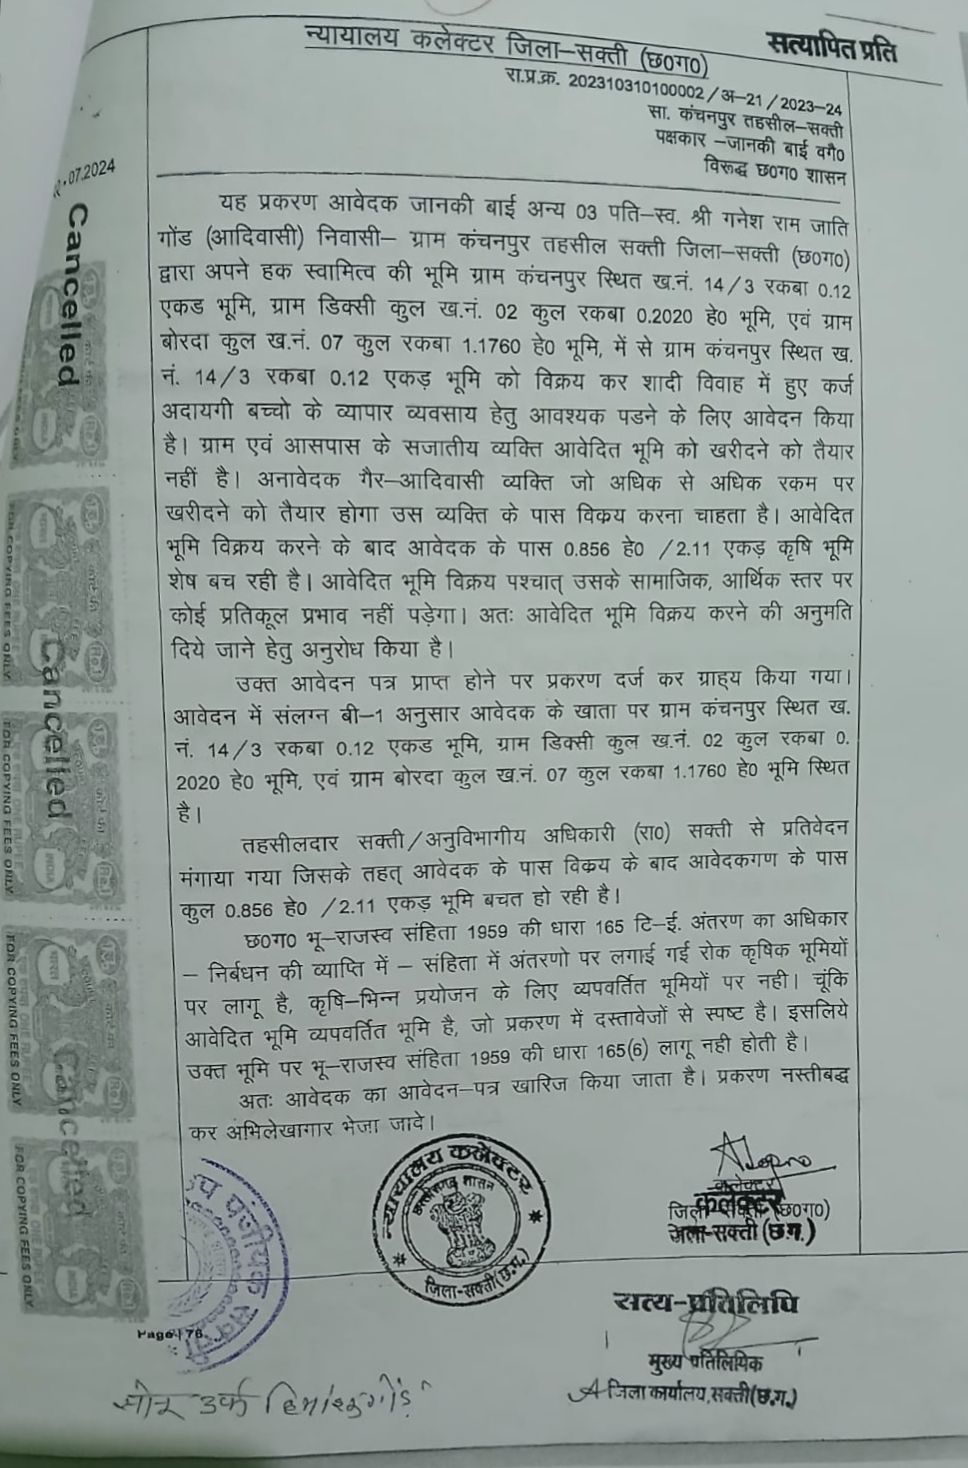 सत्यापित प्रति
न्यायालय कलेक्टर जिला–सक्ती (छ0ग0)
रा.प्र.क्र. 202310310100002 / अ–21 / 2023–24
सा. कंचनपुर तहसील–सक्ती
पक्षकार –जानकी बाई वगै0
विरूद्ध छ0ग0 शासन
.07.2024
यह प्रकरण आवेदक जानकी बाई अन्य 03 पति–स्व. श्री गनेश राम जाति
गोंड (आदिवासी) निवासी– ग्राम कंचनपुर तहसील सक्ती जिला–सक्ती (छ0ग0)
द्वारा अपने हक स्वामित्व की भूमि ग्राम कंचनपुर स्थित ख.नं. 14/3 रकबा 0.12
एकड भूमि, ग्राम डिक्सी कुल ख.नं. 02 कुल रकबा 0.2020 हे0 भूमि, एवं ग्राम
बोरदा कुल ख.नं. 07 कुल रकबा 1.1760 हे0 भूमि, में से ग्राम कंचनपुर स्थित ख.
नं. 14/3 रकबा 0.12 एकड़ भूमि को विक्रय कर शादी विवाह में हुए कर्ज
अदायगी बच्चो के व्यापार व्यवसाय हेतु आवश्यक पडने के लिए आवेदन किया
है। ग्राम एवं आसपास के सजातीय व्यक्ति आवेदित भूमि को खरीदने को तैयार
नहीं है। अनावेदक गैर–आदिवासी व्यक्ति जो अधिक से अधिक रकम पर
खरीदने को तैयार होगा उस व्यक्ति के पास विक्रय करना चाहता है। आवेदित
भूमि विक्रय करने के बाद आवेदक के पास 0.856 हे0 /2.11 एकड़ कृषि भूमि
शेष बच रही है। आवेदित भूमि विक्रय पश्चात् उसके सामाजिक, आर्थिक स्तर पर
कोई प्रतिकूल प्रभाव नहीं पड़ेगा। अतः आवेदित भूमि विक्रय करने की अनुमति
दिये जाने हेतु अनुरोध किया है।
उक्त आवेदन पत्र प्राप्त होने पर प्रकरण दर्ज कर ग्राह्य किया गया।
आवेदन में संलग्न बी–1 अनुसार आवेदक के खाता पर ग्राम कंचनपुर स्थित ख.
नं. 14/3 रकबा 0.12 एकड भूमि, ग्राम डिक्सी कुल ख.नं. 02 कुल रकबा 0.
2020 हे0 भूमि, एवं ग्राम बोरदा कुल ख.नं. 07 कुल रकबा 1.1760 हे0 भूमि स्थित
है।
तहसीलदार सक्ती/अनुविभागीय अधिकारी (रा0) सक्ती से प्रतिवेदन
मंगाया गया जिसके तहत् आवेदक के पास विक्रय के बाद आवेदकगण के पास
कुल 0.856 हे0 /2.11 एकड़ भूमि बचत हो रही है।
छ0ग0 भू–राजस्व संहिता 1959 की धारा 165 टि–ई. अंतरण का अधिकार
– निर्बधन की व्याप्ति में – संहिता में अंतरणो पर लगाई गई रोक कृषिक भूमियों
पर लागू है, कृषि–भिन्न प्रयोजन के लिए व्यपवर्तित भूमियों पर नही। चूंकि
आवेदित भूमि व्यपवर्तित भूमि है, जो प्रकरण में दस्तावेजों से स्पष्ट है। इसलिये
उक्त भूमि पर भू–राजस्व संहिता 1959 की धारा 165(6) लागू नही होती है।
अतः आवेदक का आवेदन–पत्र खारिज किया जाता है। प्रकरण नस्तीबद्ध
कर अभिलेखागार भेजा जावे।
कलेक्टर
कलेक्टर
जिला–सक्ती (छ0ग0)
जिला–सक्ती (छ.ग.)
न्यायालय कलेक्टर
छत्तीसगढ़ शासन
जिला–सक्ती (छ.ग.)
उप पंजीयक सक्ती
सत्य–प्रतिलिपि
मुख्य प्रतिलिपिक
जिला कार्यालय, सक्ती (छ.ग.)
Page | 76
सोनू उर्फ हिमांशु गोंड़
Cancelled
Cancelled
Cancelled
FOR COPYING FEES ONLY
FOR COPYING FEES ONLY
FOR COPYING FEES ONLY
FOR COPYING FEES ONLY